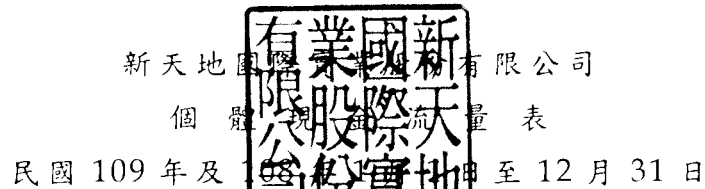 新天地國際實業股份有限公司
個體現金流量表
民國 109 年及 108 年 1 月 1 日至 12 月 31 日
新天地
國際實
業股份
有限公司